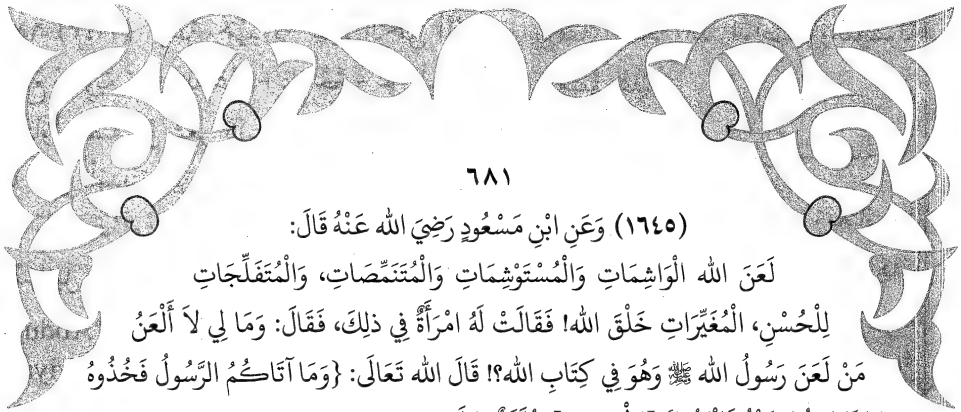 ٦٨١
(١٦٤٥) وَعَنِ ابْنِ مَسْعُودٍ رَضِيَ الله عَنْهُ قَالَ:
لَعَنَ الله الْوَاشِمَاتِ وَالْمُسْتَوْشِمَاتِ وَالْمُتَنَمِّصَاتِ، وَالْمُتَفَلِّجَاتِ
لِلْحُسْنِ، الْمُغَيِّرَاتِ خَلْقَ الله! فَقَالَتْ لَهُ امْرَأَةٌ فِي ذلِكَ، فَقَالَ: وَمَا لِي لاَ أَلْعَنُ
مَنْ لَعَنَ رَسُولُ الله ﷺ وَهُوَ فِي كِتَابِ الله؟! قَالَ الله تَعَالَى: {وَمَا آتَاكُمُ الرَّسُولُ فَخُذُوهُ